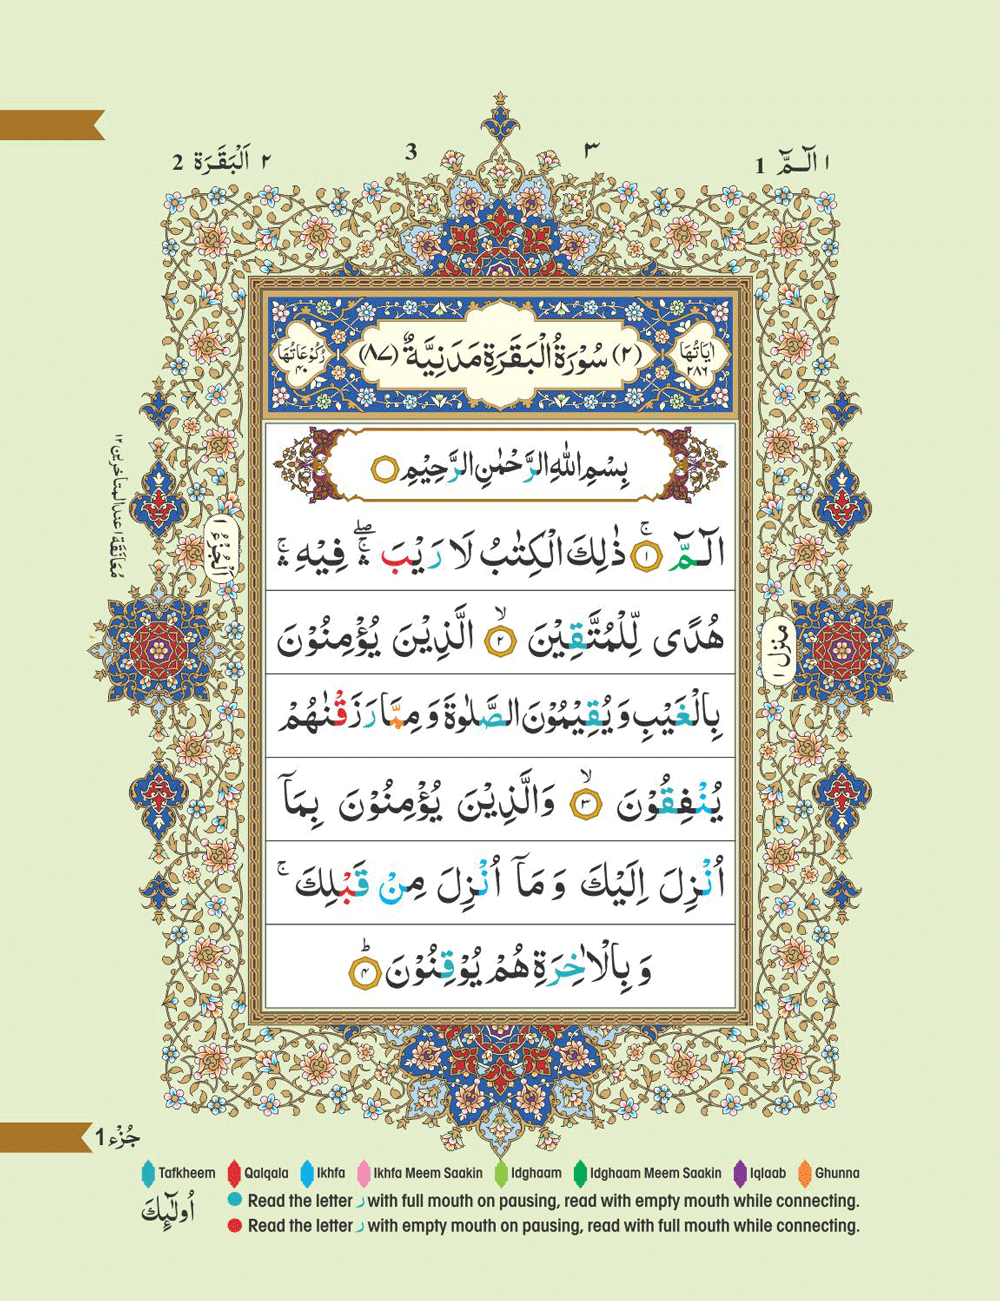 2 اَلْبَقَرَة ٢
3
٣
1 الٓـمّٓ ١
رُكُوْعَاتُهَا ٤٠
(٢) سُوْرَةُ الْبَقَرَةِ مَدَنِيَّةٌ (٨٧)
اٰيَاتُهَا ٢٨٦
بِسْمِ اللّٰهِ الرَّحْمٰنِ الرَّحِيْمِ ۝
الٓـمّٓ ۚ‏ ۝١ ذٰلِكَ الْكِتٰبُ لَا رَيْبَ ۛۖ فِيْهِ ۛۚ
هُدًى لِّلْمُتَّقِيْنَ ۙ‏ ۝٢ الَّذِيْنَ يُؤْمِنُوْنَ
بِالْغَيْبِ وَ يُقِيْمُوْنَ الصَّلٰوةَ وَ مِمَّا رَزَقْنٰهُمْ
يُنْفِقُوْنَ ۙ‏ ۝٣ وَالَّذِيْنَ يُؤْمِنُوْنَ بِمَآ
اُنْزِلَ اِلَيْكَ وَ مَآ اُنْزِلَ مِنْ قَبْلِكَ ۚ
وَ بِالْاٰخِرَةِ هُمْ يُوْقِنُوْنَ ؕ‏ ۝٤
مُعَانَقَة ١ عند المتاخرين ١٢
اَلْجُزْءُ ١
منزل ١
جُزْء 1
Tafkheem Qalqala Ikhfa Ikhfa Meem Saakin Idghaam Idghaam Meem Saakin Iqlaab Ghunna
Read the letter ر with full mouth on pausing, read with empty mouth while connecting.
Read the letter ر with empty mouth on pausing, read with full mouth while connecting.
اُولٰٓئِكَ